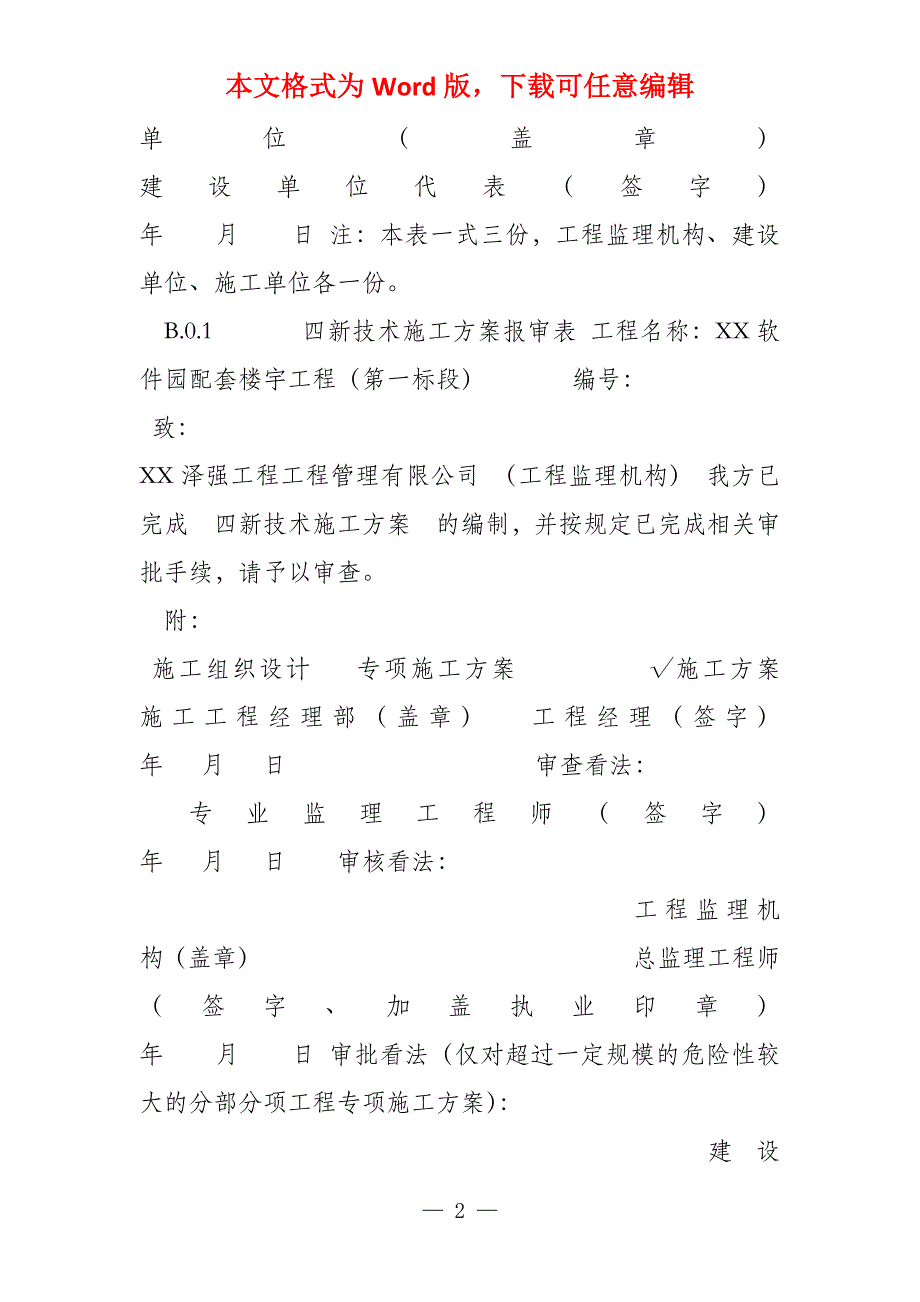 本文格式为 Word 版，下载可任意编辑
单位（盖章）
建设单位代表（签字）
年 月 日 注：本表一式三份，工程监理机构、建设
单位、施工单位各一份。
B.0.1 四新技术施工方案报审表 工程名称：XX 软
件园配套楼宇工程（第一标段） 编号：
致：
XX 泽强工程工程管理有限公司 （工程监理机构） 我方已
完成 四新技术施工方案 的编制，并按规定已完成相关审
批手续，请予以审查。
附：
施工组织设计 专项施工方案 √施工方案
施工工程经理部（盖章） 工程经理（签字）
年 月 日 审查看法：
专业监理工程师（签字）
年 月 日 审核看法：
工程监理机
构（盖章） 总监理工程师
（签字、加盖执业印章）
年 月 日 审批看法（仅对超过一定规模的危险性较
大的分部分项工程专项施工方案）：
建 设
— 2 —